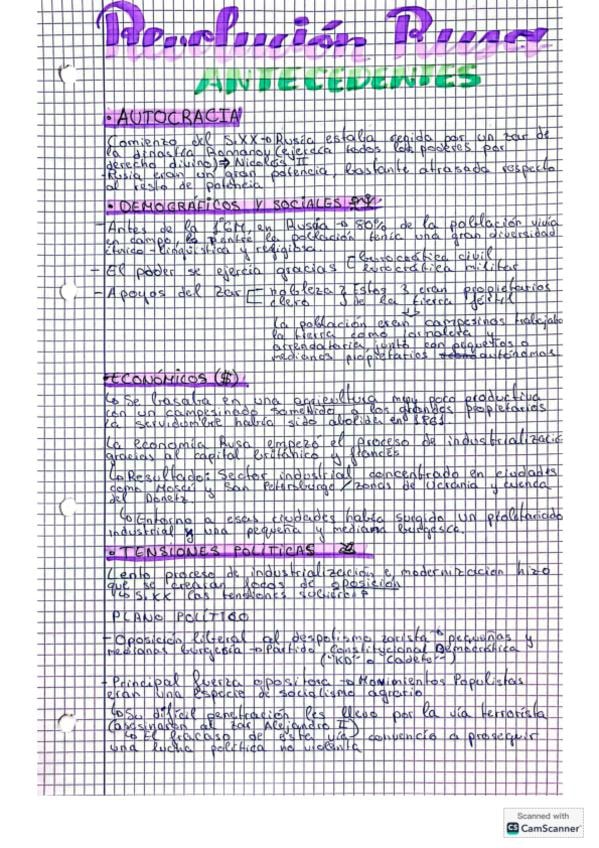 Revolución Rusa
ANTECEDENTES
• AUTOCRACIA
Comienzo del S.XX → Rusia estaba regida por un zar de
la dinastía Romanov (ejercía todos los poderes por
derecho divino) ⇒ Nicolás II
- Rusia eran un gran potencia, bastante atrasada respecto
al resto de potencia
• DEMOGRÁFICOS Y SOCIALES
- Antes de la 1ºGM, en Rusia → 80% de la población vivía
en campo, la población tenía una gran diversidad
étnico-lingüística y religiosa.
- El poder se ejercía gracias burocrática civil
burocrática militar
- Apoyos del Zar nobleza Estos 3 eran propietarios
clero de la tierra fértil
La población eran campesinos trabajabo
la tierra como jornaleros y
arrendatarios, junto con pequeños o
medianos propietarios autónomos
•ECONÓMICOS ($)
↳ Se basaba en una agricultura muy poco productiva
con un campesinado sometido a los grandes propietarios
La servidumbre había sido abolida en 1861
La economía Rusa empezó el proceso de industrializació
gracias al capital británico y francés
↳ Resultado: Sector industrial concentrado en ciudades
como Moscú y San Petersburgo / zonas de Ucrania y cuenca
del Donetz
↳ Entorno a esas ciudades había surgido un proletariado
industrial y una pequeña y mediana burgesca.
• TENSIONES POLÍTICAS
Lento proceso de industrialización e modernización hizo
que se crearan focos de oposición
↳ S.XX las tensiones subieron ↑
PLANO POLÍTICO
- Oposición liberal al despotismo zarista → pequeñas y
medianas burgesía → Partido Constitucional Democrática
("KD" o "Cadete")
- Principal fuerza opositora → Movimientos Populistas
eran una especie de socialismo agrario
↳ Su difícil penetración les llevo por la vía terrorista
(asesinaron al zar Alejandro II)
↳ El fracaso de esta vía convenció a proseguir
una lucha política no violenta
Scanned with
CS CamScanner